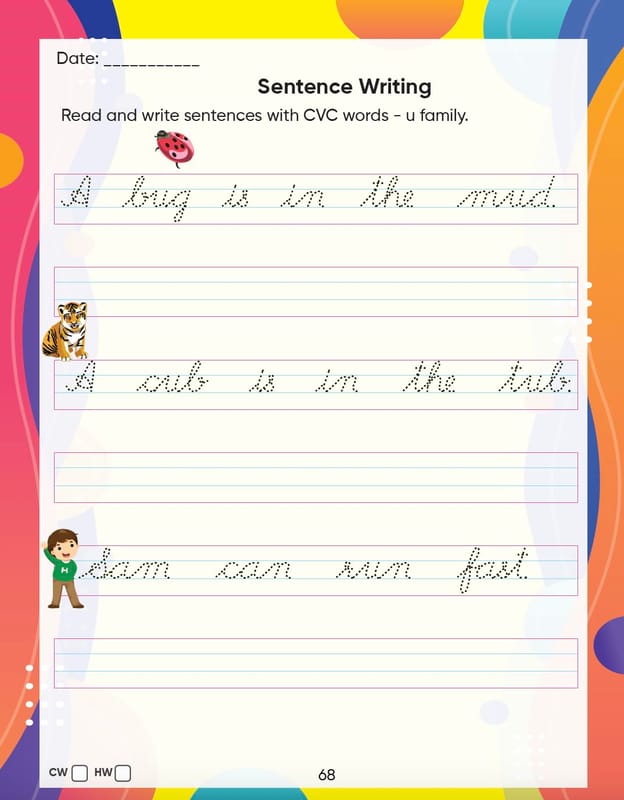 Date: ___________
Sentence Writing
Read and write sentences with CVC words - u family.
A bug is in the mud.
A cub is in the tub.
H
Sam can run fast.
CW HW
68